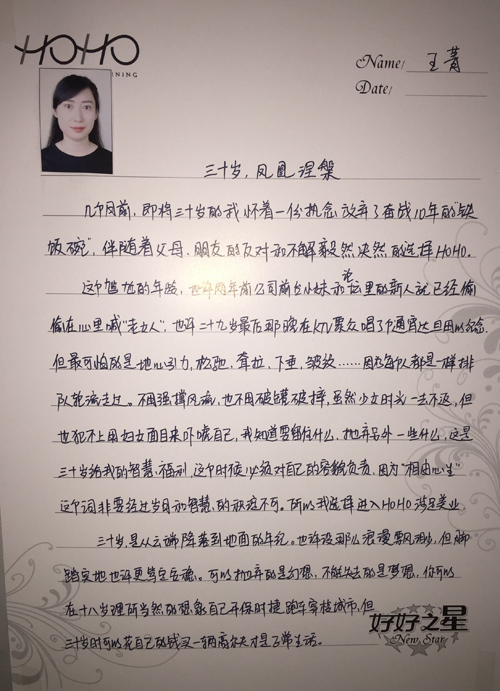 HOHO
NING
Name/ 王菁
Date/
三十岁,凤凰涅槃
几个月前,即将三十岁的我怀着一份执念放弃了奋战10年的"铁
饭碗",伴随着父母、朋友的反对和不解毅然决然的选择HOHO。
这个尴尬的年龄,也许两年前公司前台小妹和论里的新人就已经偷
偷在心里喊"老女人";也许二十九岁最后那晚在KTV聚众唱了个通宵达旦用以纪念.
但最可怕的是地心引力,松弛、耷拉、下垂、皱纹……因为每个人都是一样排
队轮流走过。不用强撑风流,也不用破罐破摔,虽然少女时光一去不返,但
也犯不上用妇女面目来吓唬自己,我知道要留住什么,抛弃另外一些什么,这是
三十岁给我的智慧、福利,这个时候必须对自己的容貌负责,因为"相由心生"
这个词非要经过岁月和智慧的
不可。所以我选择进入HOHO
美业.
三十岁,是从云端降落到地面的年纪。也许没那么浪漫飘飘,但脚
踏实地也许更笃定安稳。可以抛弃的是幻想,不能失去的是梦想,你可以
在十八岁理所当然的想象自己开保时捷跑车穿梭城市,但
三十岁时可以花自己的钱买一辆高尔夫才是正常生活。
好好之星
New Star